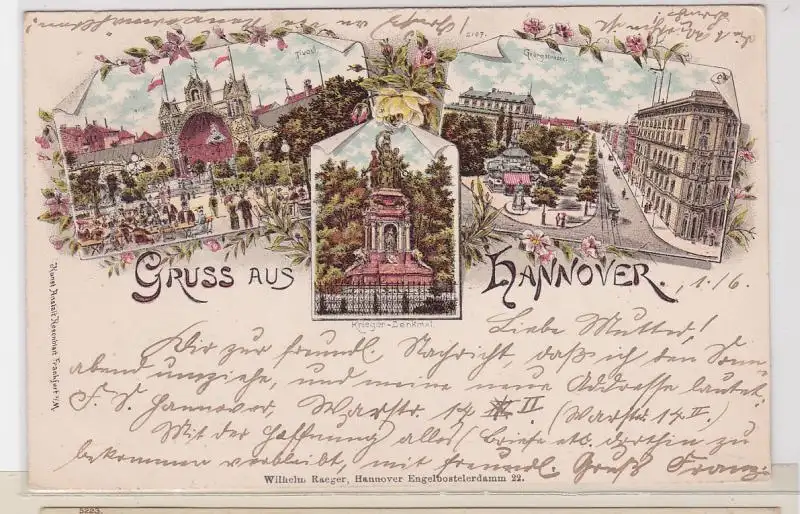 Tivoli.
2107.
Georgstrasse.
Krieger-Denkmal.
GRUSS AUS HANNOVER.
, 1./6.
Liebe Mutter!
Dir zur freundl. Nachricht, daß ich den Sonn-
abend umziehe, und meine neue Addresse lautet.
F. S. Hannover, Warstr. 14 II (Warstr. 14 II.)
Mit der Hoffnung alles Briefe etc. dorthin zu
bekommen verbleibt, mit freundl. Gruß Franz.
Wilhelm Raeger, Hannover Engelbostelerdamm 22.
Kunst Anstalt Rosenblatt Frankfurt a/M.
5223.